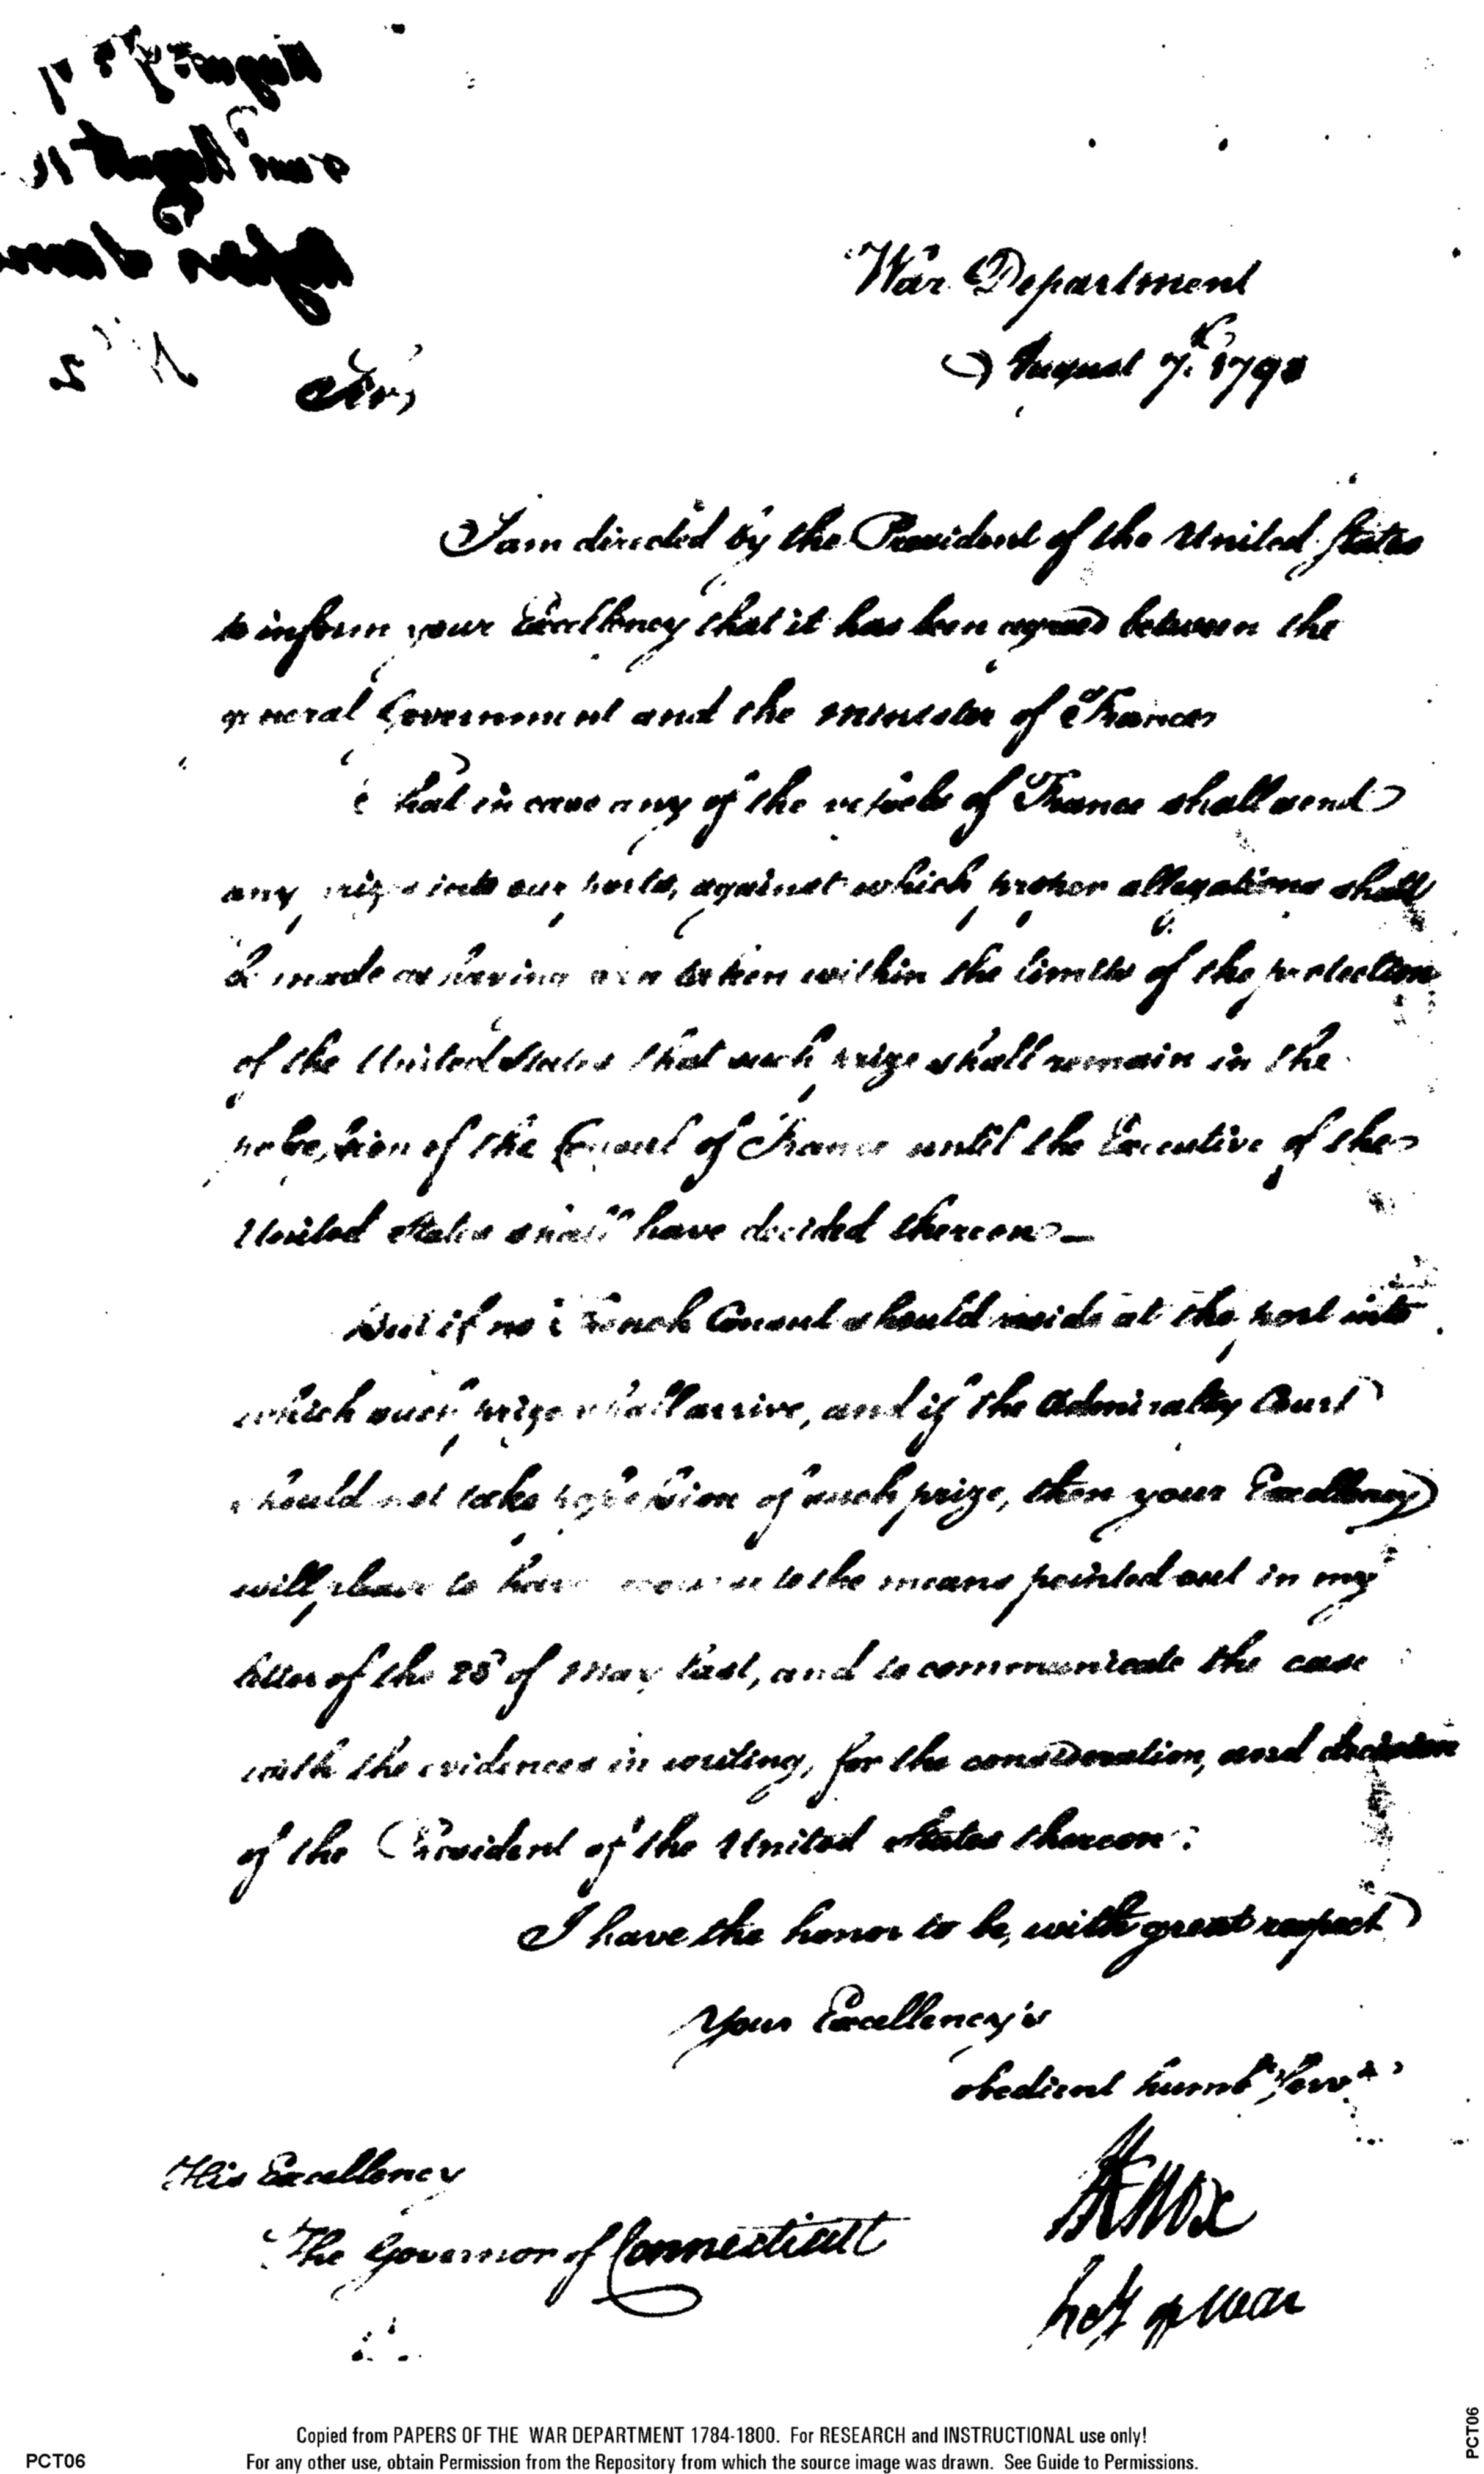 War Department
August 7th. 1793
Sir,
I am directed by the President of the United States
to inform your Excellency that it has been agreed between the
general Government and the minister of France
that in case any of the vessels of France shall send
any prize into our ports, against which proper allegations shall
be made as having been taken within the limits of the protection
of the United States that such prize shall remain in the
possession of the Consul of France until the Executive of the
United States shall have decided thereon —
But if no French Consul should reside at the port into
which such prize shall arrive, and if the Admiralty Court
should not take possession of such prize, then your Excellency
will please to have recourse to the means pointed out in my
letter of the of May last, and to communicate the case
with the evidences in writing, for the consideration, and decision
of the President of the United States thereon.
I have the honor to be, with great respect
Your Excellency's
obedient humb Servt
HKnox
Secy of War
His Excellency
The Governor of Connecticutt
Copied from PAPERS OF THE WAR DEPARTMENT 1784-1800. For RESEARCH and INSTRUCTIONAL use only!
PCT06
For any other use, obtain Permission from the Repository from which the source image was drawn. See Guide to Permissions.
PCT06